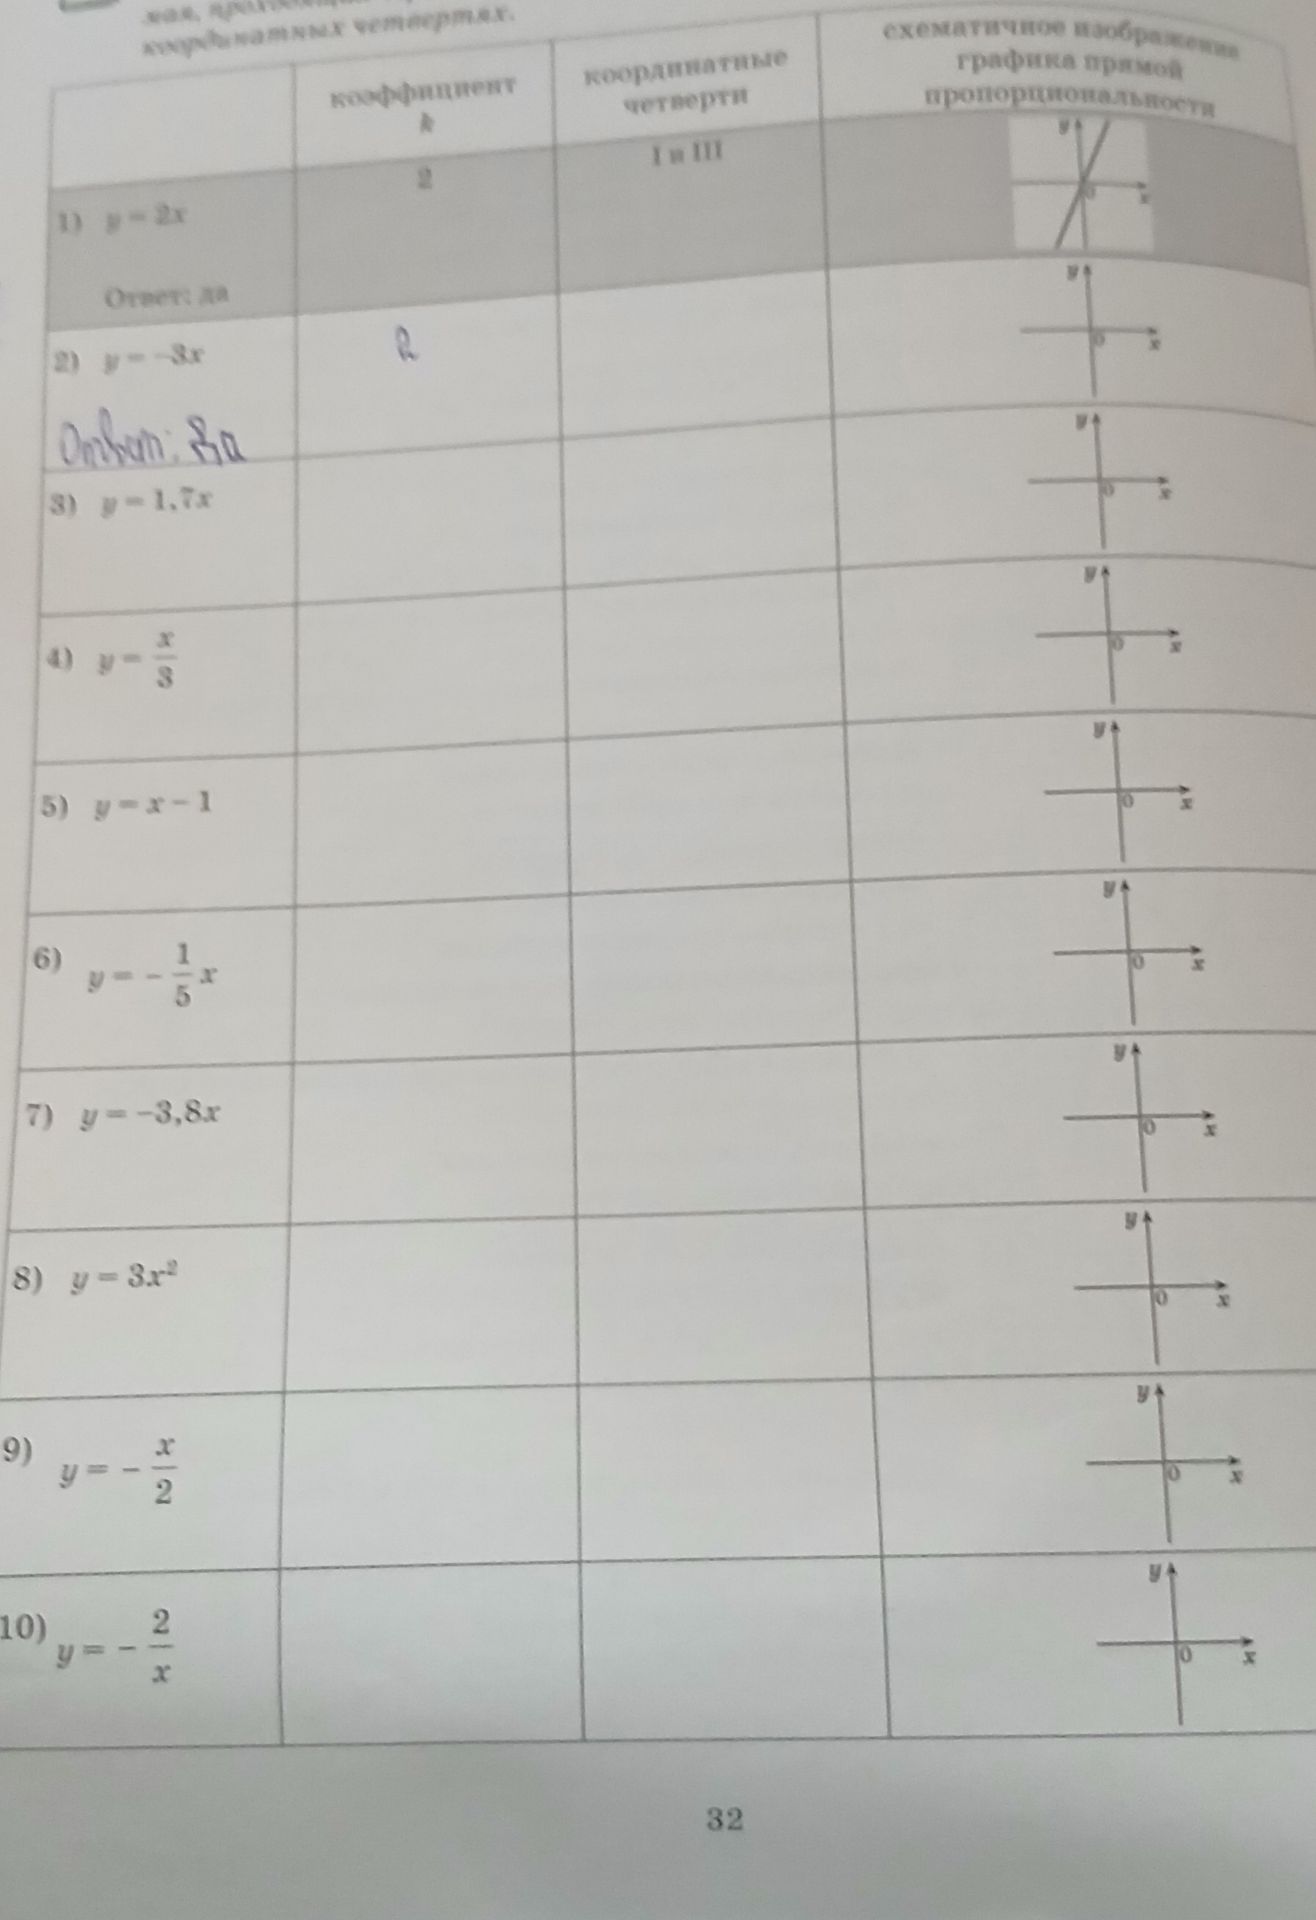 координатных четвертях.
коэффициент
k
координатные
четверти
схематичное изображение
графика прямой
пропорциональности
1) y = 2x
2
I и III
y
0
x
Ответ: да
2) y = -3x
y
0
x
Ответ: да
3) y = 1,7x
y
0
x
4) y = x/3
y
0
x
5) y = x - 1
y
0
x
6) y = - 1/5 x
y
0
x
7) y = -3,8x
y
0
x
8) y = 3x²
y
0
x
9) y = - x/2
y
0
x
10) y = - 2/x
y
0
x
32